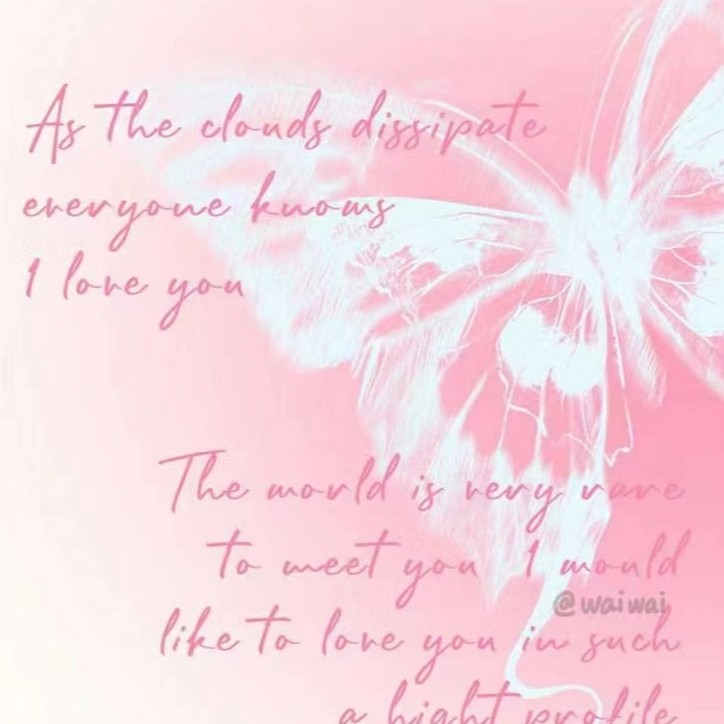 As the clouds dissipate
everyone knows
I love you
The world is very rare
to meet you I would
@waiwai
like to love you in such
a hight profile